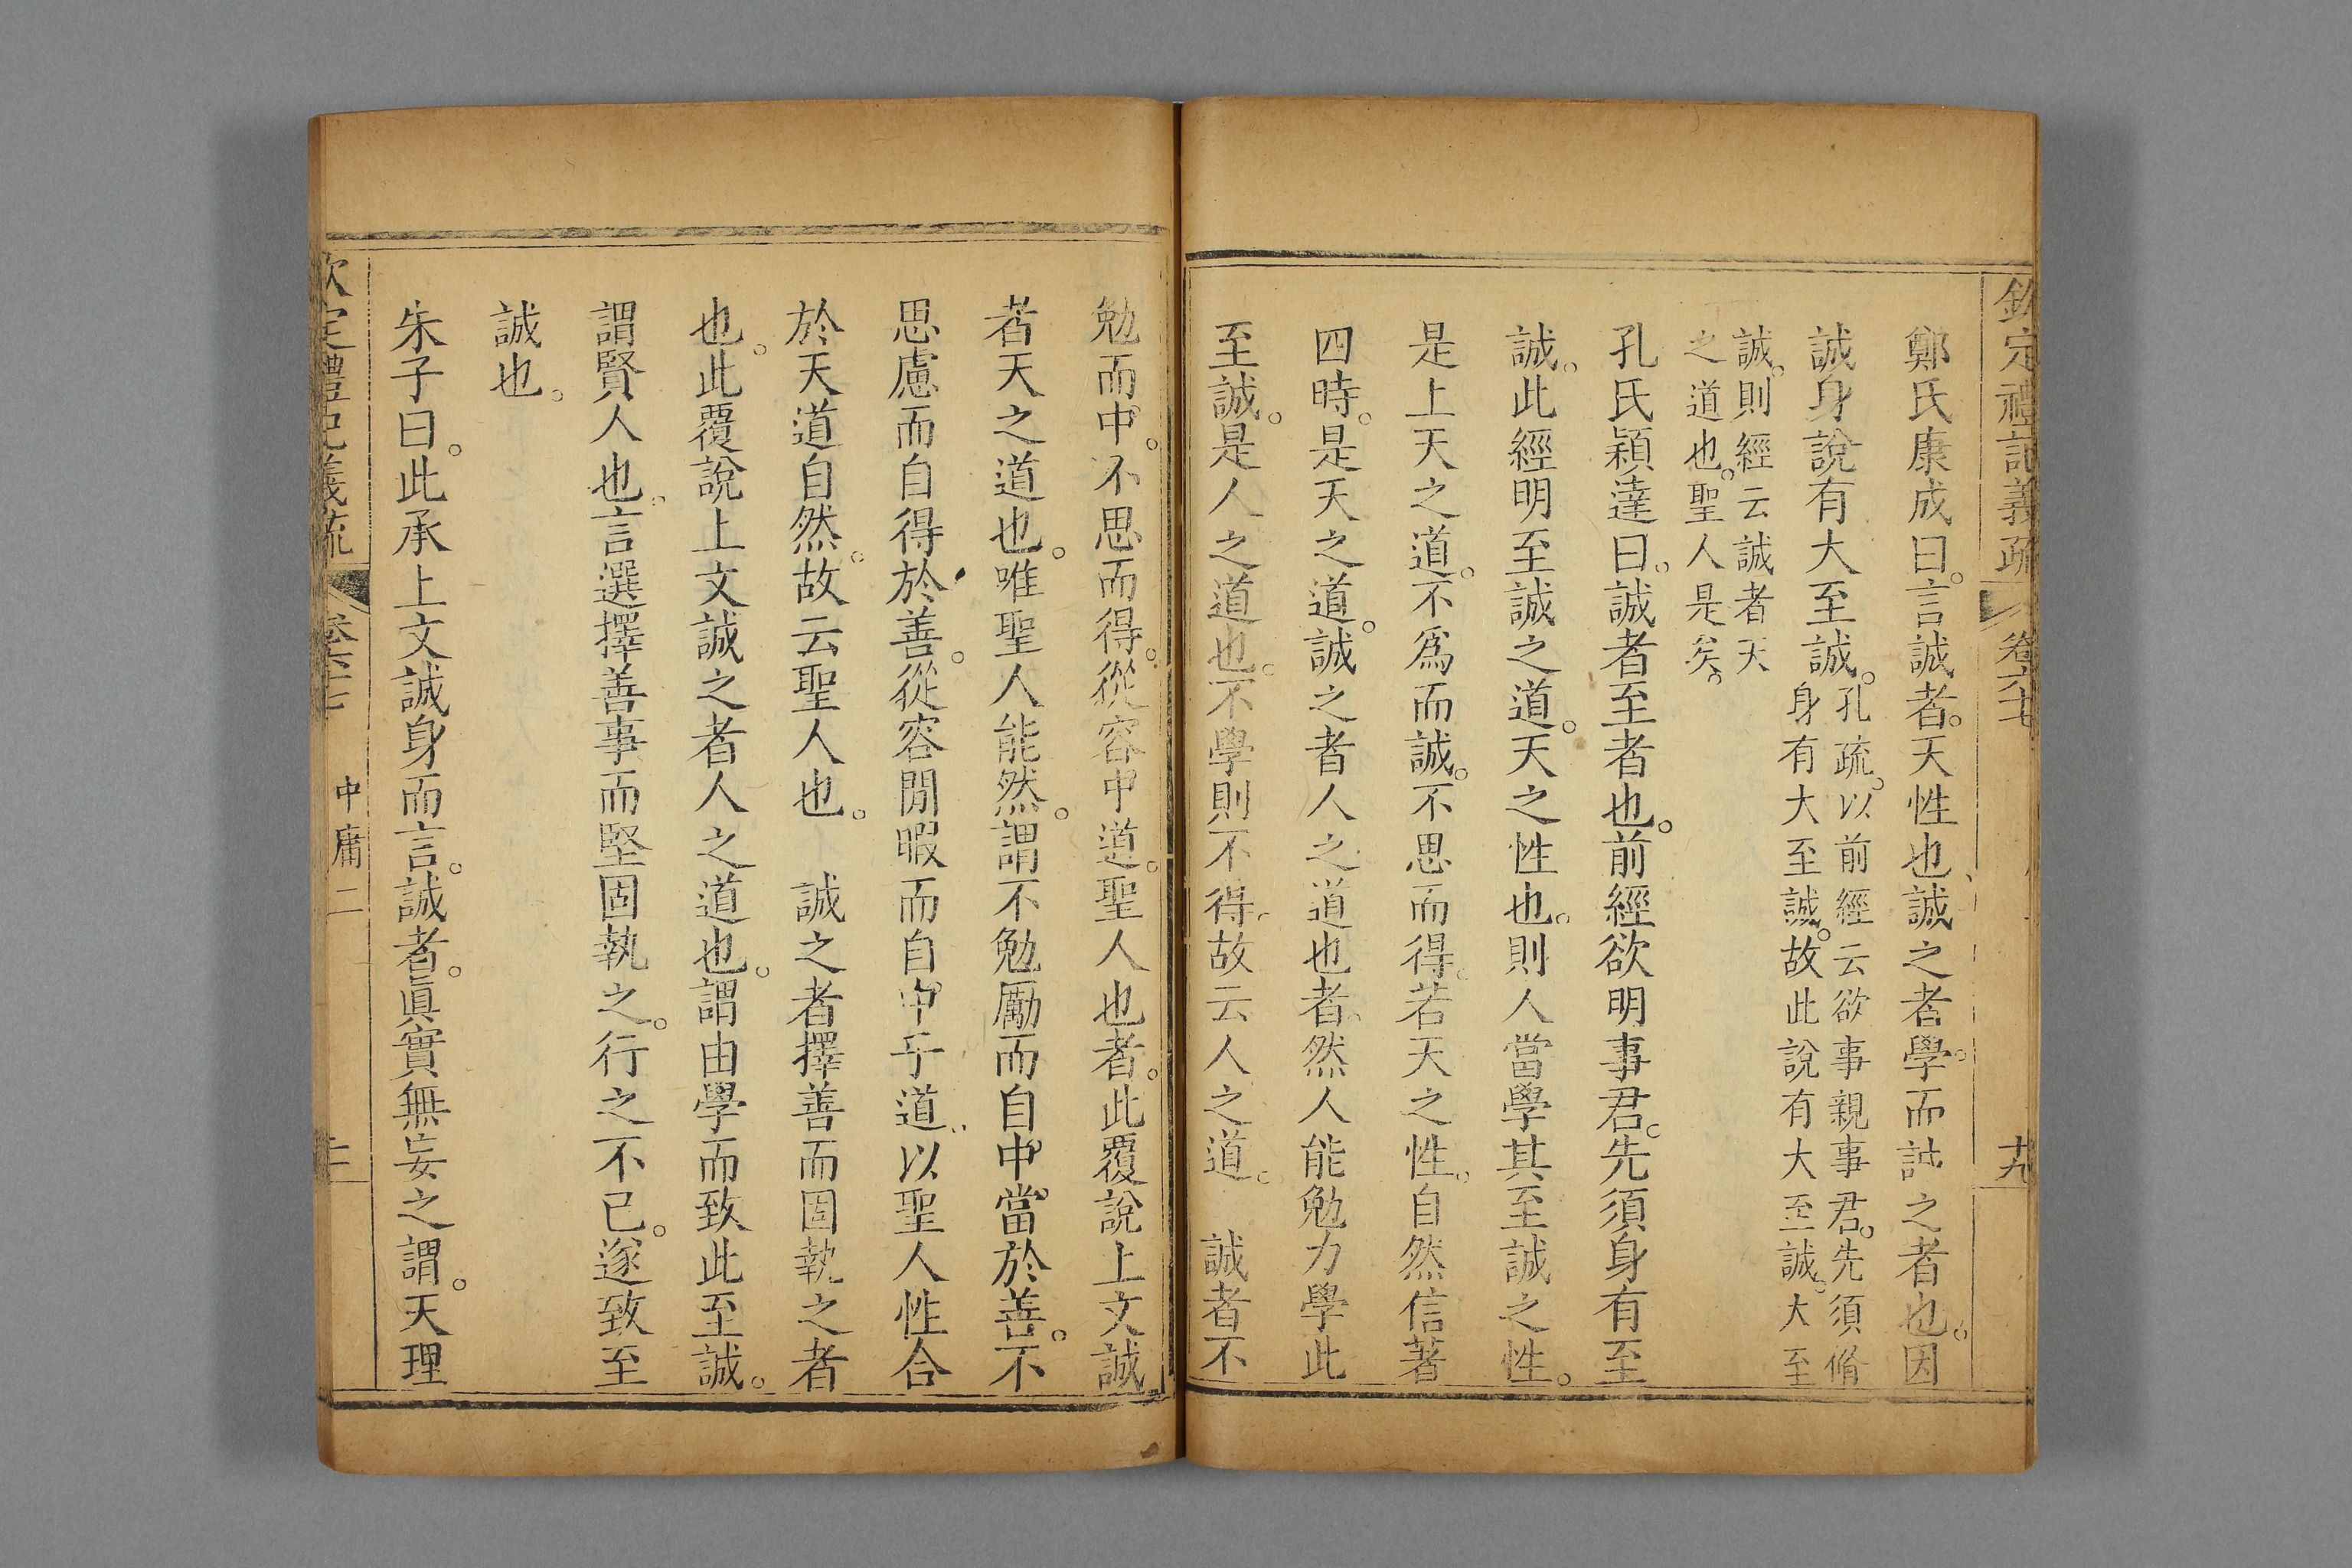 欽定禮記義疏 卷六十七 十九
鄭氏康成曰。言誠者。天性也。誠之者。學而誠之者也。因
誠身說有大至誠。
孔疏。以前經云欲事親事君。先須脩
身有大至誠。故此說有大至誠。大至
誠。則經云誠者天
之道也。聖人是矣。
孔氏穎達曰。誠者至者也。前經欲明事君。先須身有至
誠。此經明至誠之道。天之性也。則人當學其至誠之性。
是上天之道。不爲而誠。不思而得。若天之性。自然信著
四時。是天之道。誠之者人之道也者。然人能勉力學此
至誠。是人之道也。不學則不得。故云人之道。 誠者不
勉而中。不思而得。從容中道。聖人也者。此覆說上文誠
者天之道也。唯聖人能然。謂不勉勵而自中當於善。不
思慮而自得於善。從容閒暇而自中乎道。以聖人性合
於天道自然。故云聖人也。 誠之者擇善而固執之者
也。此覆說上文誠之者人之道也。謂由學而致此至誠。
謂賢人也。言選擇善事而堅固執之。行之不已。遂致至
誠也。
朱子曰。此承上文誠身而言。誠者。眞實無妄之謂。天理
欽定禮記義疏 卷六十七 中庸二